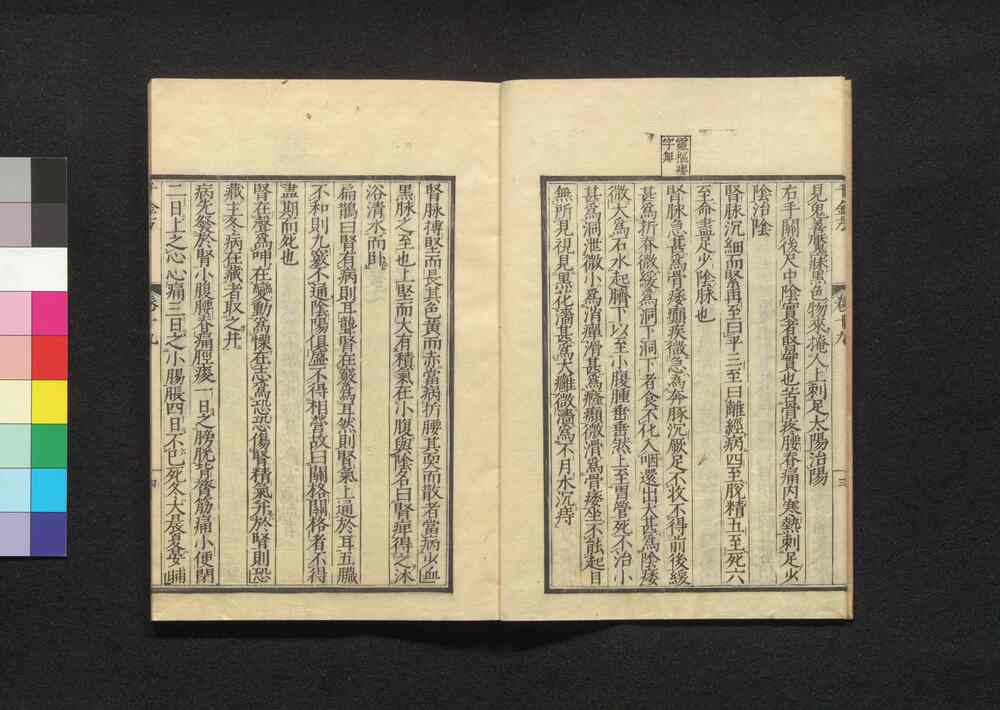 靈樞瘻
字無
見鬼善魘寐黑色物來掩人上刺足太陽治陽
右手關後尺中陰實者腎實也苦骨疼腰脊痛內寒熱刺足少
陰治陰
腎脉沉細而緊再至曰平三至曰離經病四至脫精五至死六
至命盡足少陰脉也
腎脉急甚爲骨痿癲疾微急爲奔豚沉厥足不收不得前後緩
甚爲折脊微緩爲洞下洞下者食不化入咽還出大甚爲陰痿
微大爲石水起臍下以至小腹腫垂垂然上至胃管死不治小
甚爲洞泄微小爲消癉滑甚爲癃癩微滑爲骨痿坐不能起目
無所見視見黑花濇甚爲大癰微濇爲不月水沉痔
腎脉搏堅而長其色黃而赤當病折腰其耎而散者當病少血
黑脉之至也上堅而大有積氣在小腹與陰名曰腎痺得之沐
浴清水而臥
扁鵲曰腎有病則耳聾腎在竅爲耳然則腎氣上通於耳五臟
不和則九竅不通陰陽俱盛不得相營故曰關格關格者不得
盡期而死也
腎在聲爲呻在變動爲慄在志爲恐恐傷腎精氣并於腎則恐
藏主冬病在藏者取之井
病先發於腎小腹腰脊痛脛痠一日之膀胱背膂筋痛小便閉
二日上之心心痛三日之小腸脹四日不已死冬大晨夏晏晡